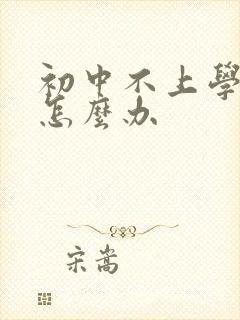 初中不上學
怎麼办
宋嵩